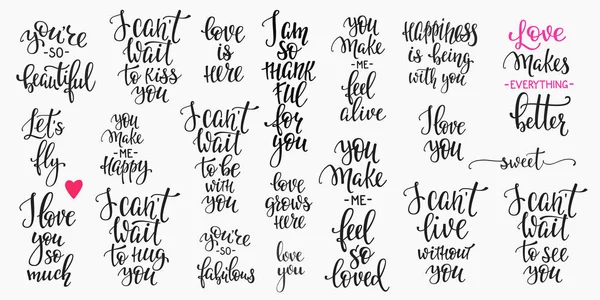 you're
-SO-
beautiful
Let's
fly
I love
you
so
much
I can't
wait
to kiss
you
you
make
-ME-
Happy
I can't
wait
to hug
you
love
is
here
I can't
wait
to be
with
you
you're
-SO-
fabulous
I am
so
THANK
FUL
for
you
love
grows
here
love
you
you
make
-ME-
feel
alive
you
make
-ME-
feel
so
loved
Happiness
is being
with you
I love
you
I can't
live
without
you
Love
Makes
-EVERYTHING-
better
sweet
I can't
wait
to see
you